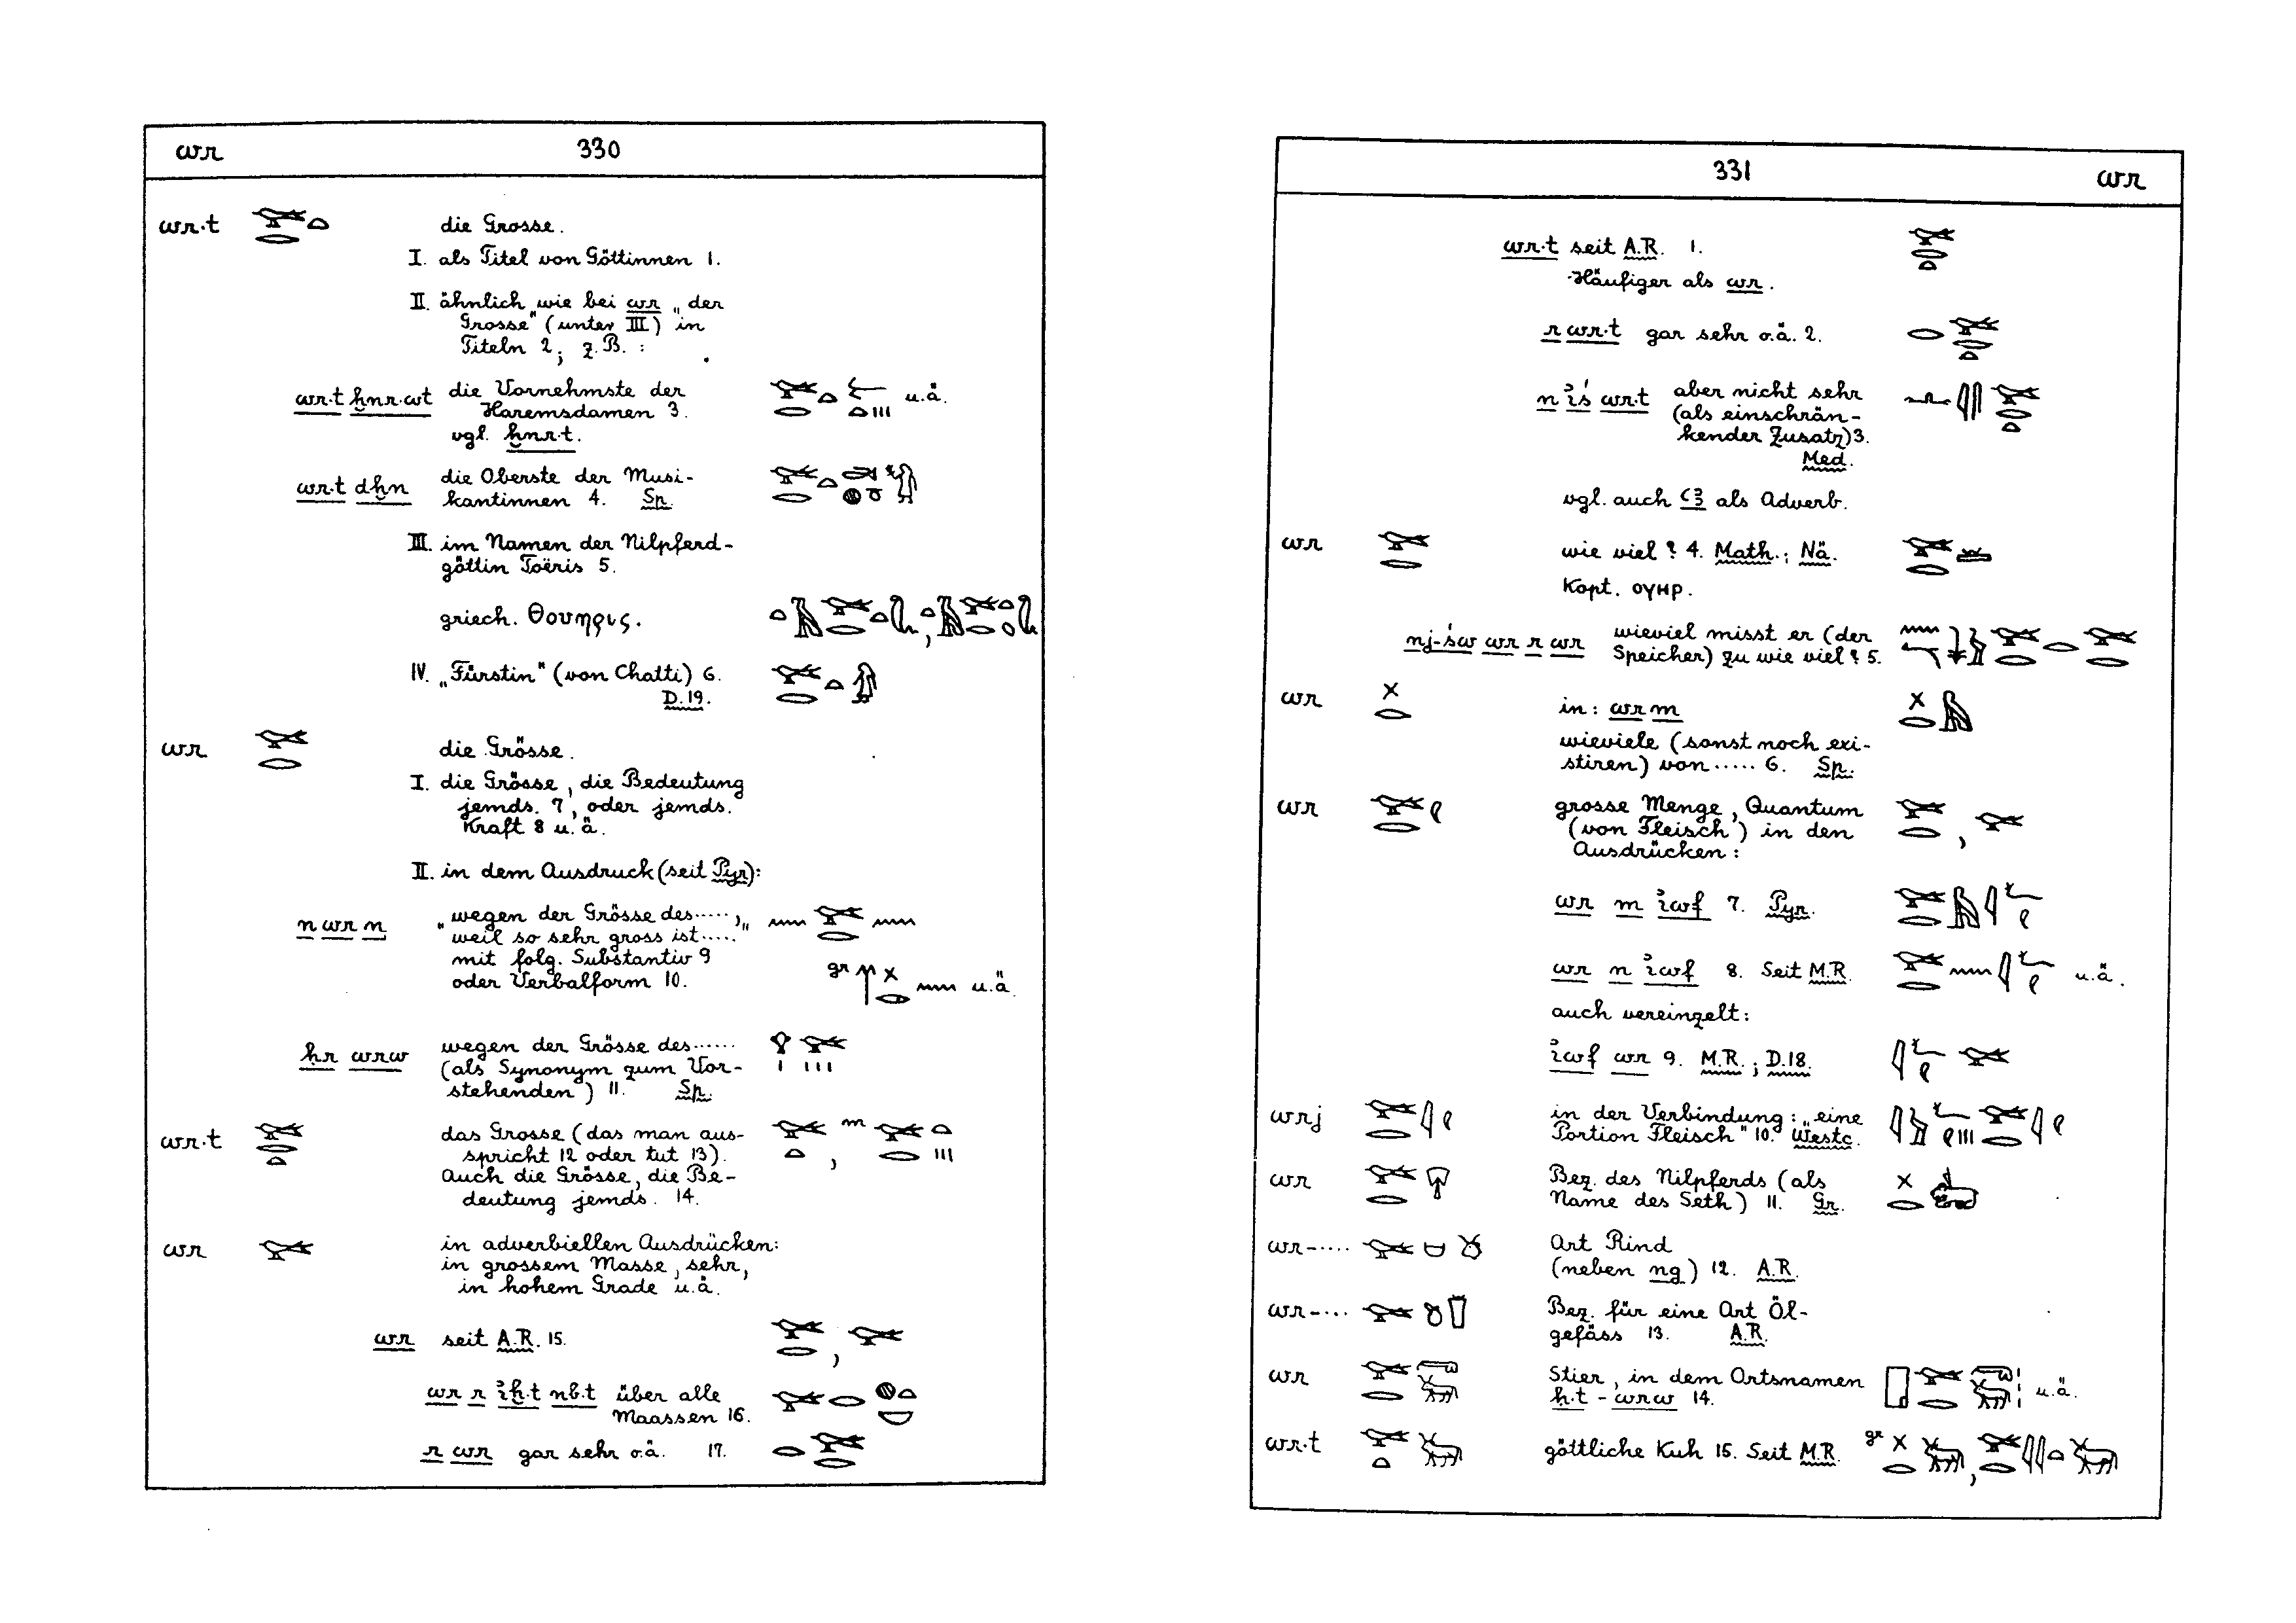 wr 330
wr.t die Grosse.
I. als Titel von Göttinnen 1.
II. ähnlich wie bei wr „der
Grosse" (unter III) in
Titeln 2; z.B. :
wr.t ḫnr.wt die Vornehmste der u.ä.
Haremsdamen 3.
vgl. ḫnr.t.
wr.t dḫn die Oberste der Musi-
kantinnen 4. Sp.
III. im Namen der Nilpferd-
göttin Toëris 5.
griech. Θουηρις.
IV. „Fürstin" (von Chatti) 6.
D.19.
wr die Grösse.
I. die Grösse, die Bedeutung
jemds. 7, oder jemds.
Kraft 8 u.ä.
II. in dem Ausdruck (seit Pyr.):
n wr n „wegen der Grösse des....., "
„weil so sehr gross ist....."
mit folg. Substantiv 9
oder Verbalform 10. gr u.ä.
ḥr wrw wegen der Grösse des......
(als Synonym zum Vor-
stehenden) 11. Sp.
wr.t das Grosse (das man aus- m
spricht 12 oder tut 13). ,
Auch die Grösse, die Be-
deutung jemds. 14.
wr in adverbiellen Ausdrücken:
in grossem Masse, sehr,
in hohem Grade u.ä.
wr seit A.R. 15. ,
wr r ἰḫ.t nb.t über alle
Maassen 16.
r wr gar sehr o.ä. 17.
331 wr
wr.t seit A.R. 1.
Häufiger als wr.
r wr.t gar sehr o.ä. 2.
n ἰś wr.t aber nicht sehr
(als einschrän-
kender Zusatz) 3.
Med.
vgl. auch ꜥꜣ als Adverb.
wr wie viel? 4. Math.; Nä.
Kopt. ⲟⲩⲏⲣ.
nj-św wr r wr wieviel misst er (der
Speicher) zu wie viel? 5.
wr in: wr m
wieviele (sonst noch exi-
stiren) von ..... 6. Sp.
wr grosse Menge, Quantum
(von Fleisch) in den ,
Ausdrücken:
wr m ἰwf 7. Pyr.
wr n ἰwf 8. Seit M.R. u.ä.
auch vereinzelt:
ἰwf wr 9. M.R.; D.18.
wrj in der Verbindung: „eine
Portion Fleisch" 10. Westc.
wr Bez. des Nilpferds (als
Name des Seth) 11. Gr.
wr-.... Art Rind
(neben ng) 12. A.R.
wr-.... Bez. für eine Art Öl-
gefäss 13. A.R.
wr Stier, in dem Ortsnamen
ḥ.t - wrw 14. u.ä.
wr.t göttliche Kuh 15. Seit M.R. gr ,